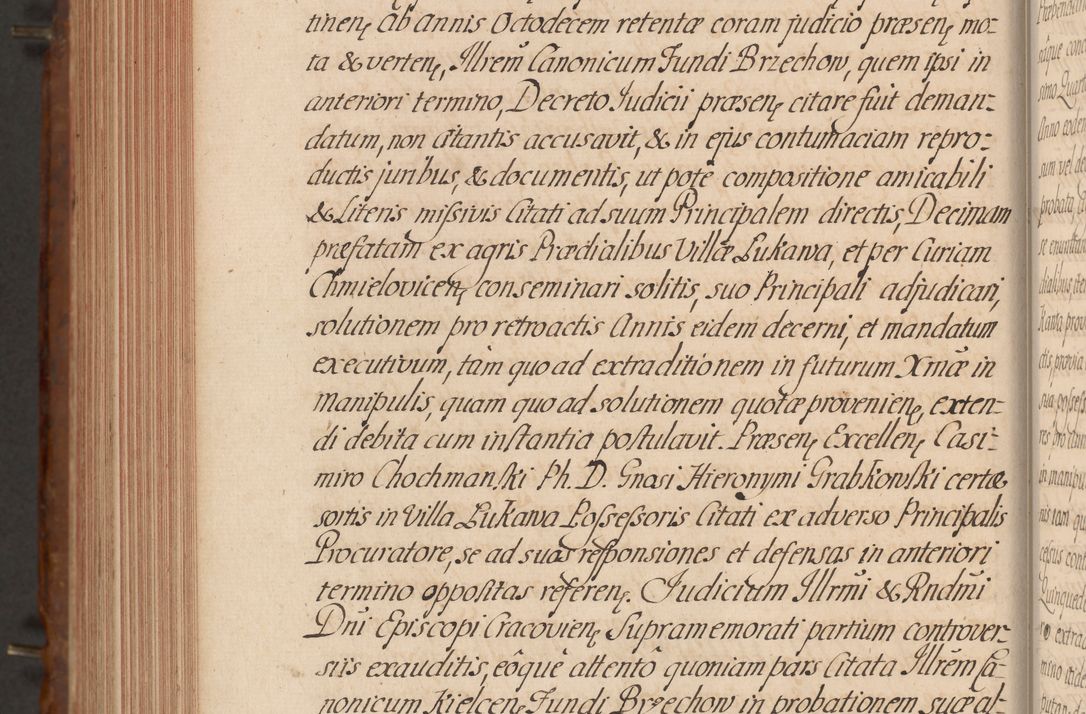 tinenȩ ab annis Octodecem retentæ coram judicio præsenȩ mo:
ta & vertenȩ, Illrem̃ Canonicum Fundi Brzechow, quem ipsi in
anteriori termino, Decreto Judicii præsenȩ citare fuit deman:
datum, non citantis accusavit, & in ejus contumaciam repro:
ductis juribus, & documentis, ut pote compositione amicabili
& Literis missivis Citati ad suum Principalem directis, Decimam
præfatam ex agris Prædialibus Villæ Lukawa, et per Curiam
Chmielovicenȩ conseminari solitis, suo Principali adjudicari,
solutionem pro retroactis Annis eidem decerni, et mandatum
executivum, tàm quo ad extraditionem in futurum Xmæ in
manipulis, quam quo ad solutionem quotæ provenienȩ, exten:
di debita cum instantia postulavit. Præsenȩ Excellenȩ Casi:
miro Chochmanski Ph. D. Gnosi Hieronymi Grabkowski certæ
sortis in Villa Lukawa Possessoris Citati ex adverso Principalis
Procuratore, se ad suas responsiones et defensas in anteriori
termino oppositas referenȩ. Judicium Illrmi & Rndmi
Dni Episcopi Cracovienȩ Supramemorati partium controver
siis exauditis, eôquè attentô quoniam pars Citata Illrẽm Ca:
nonicum Kielcenȩ Fundi Brzechow in probationem suæ al: